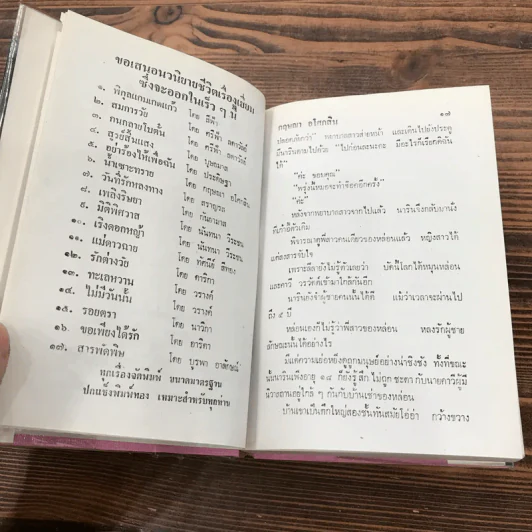 ขอเสนอนวนิยายชีวิตเรื่องเยี่ยม
ซึ่งจะออกในเร็ว ๆ นี้
๑. พิกุลแกมเกดแก้ว โดย สีฟ้า
๒. สมการวัย โดย ศรีฟ้า ลดาวัลย์
๓. คนกลายใบดั้น โดย ศรีฟ้า ลดาวัลย์
๔. สูวย์สิ้นแสง โดย บุษยมาส
๕. อย่าร้องไห้เพื่อฉัน โดย ประดิษฐา
๖. น้ำเซาะทราย โดย กฤษณา อโศกสิน
๗. วันที่รักหลงทาง โดย สราญรส
๘. เพลิงริษยา โดย กันยามาส
๙. มิติพิศวาส โดย นันทนา วีระชน
๑๐. เริงดอกหญ้า โดย นันทนา วีระชน
๑๑. แม่ดาวฉาย โดย ทัศนีย์
๑๒. รักต่างวัย โดย ดาริกา
๑๓. ทะเลหวาน โดย วรางค์
๑๔. ไม่มีวันนั้น โดย วรางค์
๑๕. รอยตรา โดย นาวิกา
๑๖. ขอเพียงได้รัก โดย อาริตา
๑๗. สารพัดพิษ โดย บูรพา อารักษณ์
ทุกเรื่องจัดพิมพ์ ขนาดมาตรฐาน
ปกแข็งพิมพ์ทอง เหมาะสำหรับทุกท่าน
กฤษณา อโศกสิน ๑๗
ปลอดภัยกว่า" พยาบาลสาวส่ายหน้า และเดินไปยังประตู
มีนารินตามไปด้วย "ไปก่อนนะคะ มีอะไรก็เรียกดิฉัน
ได้"
"ค่ะ ขอบคุณ"
"พรุ่งนี้หมอจะทำช็อกอีกครั้ง"
"ค่ะ"
หลังจากพยาบาลสาวจากไปแล้ว นารินจึงกลับมานั่ง
ที่เก้าอี้ตัวเดิม
พิจารณาดูพี่สาวคนเดียวของหล่อนแล้ว หญิงสาวก็
แต่สงสารจับใจ
เพราะลีลายังไม่รู้ตัวเลยว่า บัดนี้โลกได้หมุนหล่อน
และคาวี วรวัคค์เข้ามาใกล้กันอีก
นารินยังจำผู้ชายคนนั้นได้ดี แม้ว่าเวลาจะผ่านไป
ถึง ๕ ปี
หล่อนเองก็ไม่รู้ว่าพี่สาวของหล่อน หลงรักผู้ชาย
ลักษณะนั้นได้อย่างไร
มีแต่ความเย่อหยิ่งดูถูกมนุษย์อย่างน่าชิงชัง ทั้งที่ขณะ
นั้นนารินเพิ่งอายุ ๑๔ ก็ยังรู้สึกไม่ถูกชะตา กับนายคาวีผู้มี
นิวาสถานอยู่ใกล้ ๆ กันกับบ้านเช่าของหล่อน
บ้านเขาเป็นตึกใหญ่สองชั้นทันสมัยโอ่อ่า กว้างขวาง